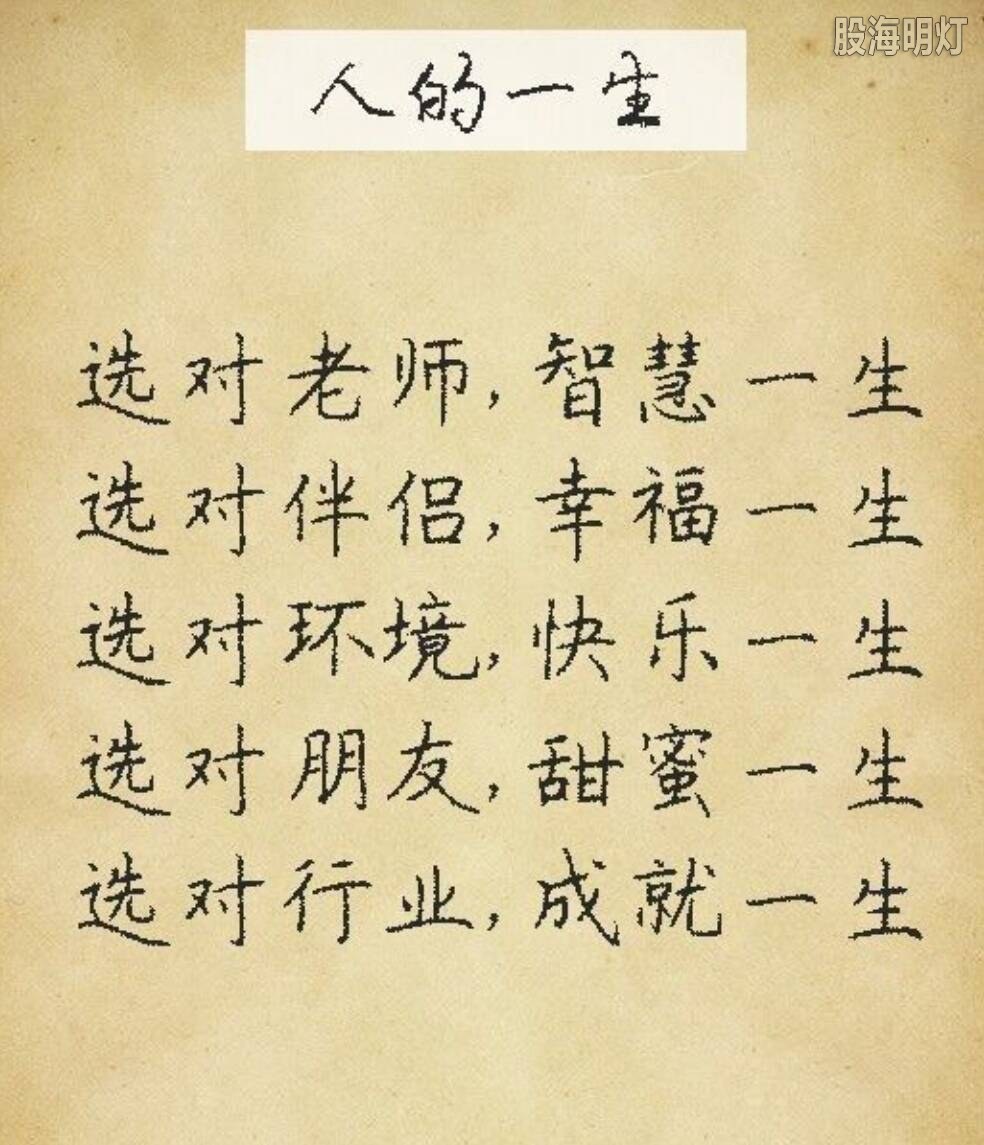 股海明灯
人的一生
选对老师,智慧一生
选对伴侣,幸福一生
选对环境,快乐一生
选对朋友,甜蜜一生
选对行业,成就一生